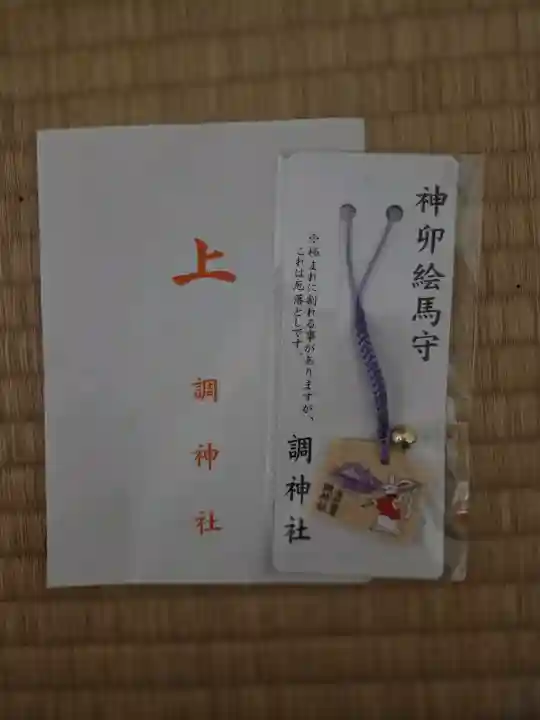 上
調神社
神卯絵馬守
※極まれに割れる事がありますが、
これは厄落としです。
調神社